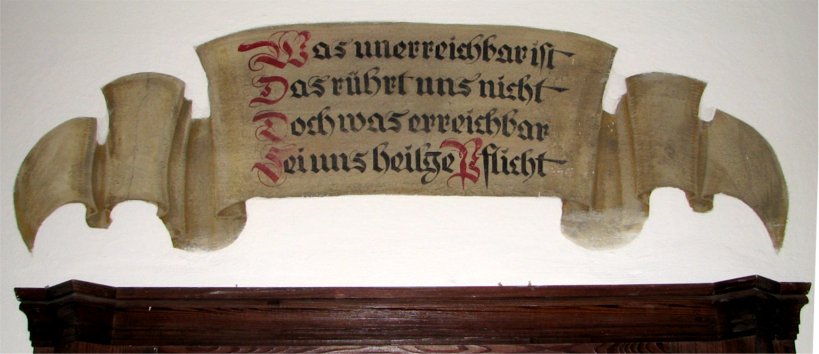 Was unerreichbar ist
Das rührt uns nicht
Doch was erreichbar
Sei uns heilge Pflicht